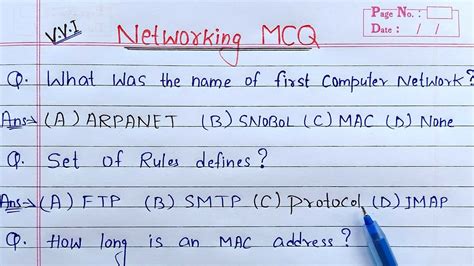 Page No. :
Date : / /
V.V.I
Networking MCQ
Q. What was the name of first Computer Network?
Ans→ (A) ARPANET (B) SNOBOL (C) MAC (D) None
Q. Set of Rules defines?
Ans→ (A) FTP (B) SMTP (C) Protocol (D) IMAP
Q. How long is an MAC address?